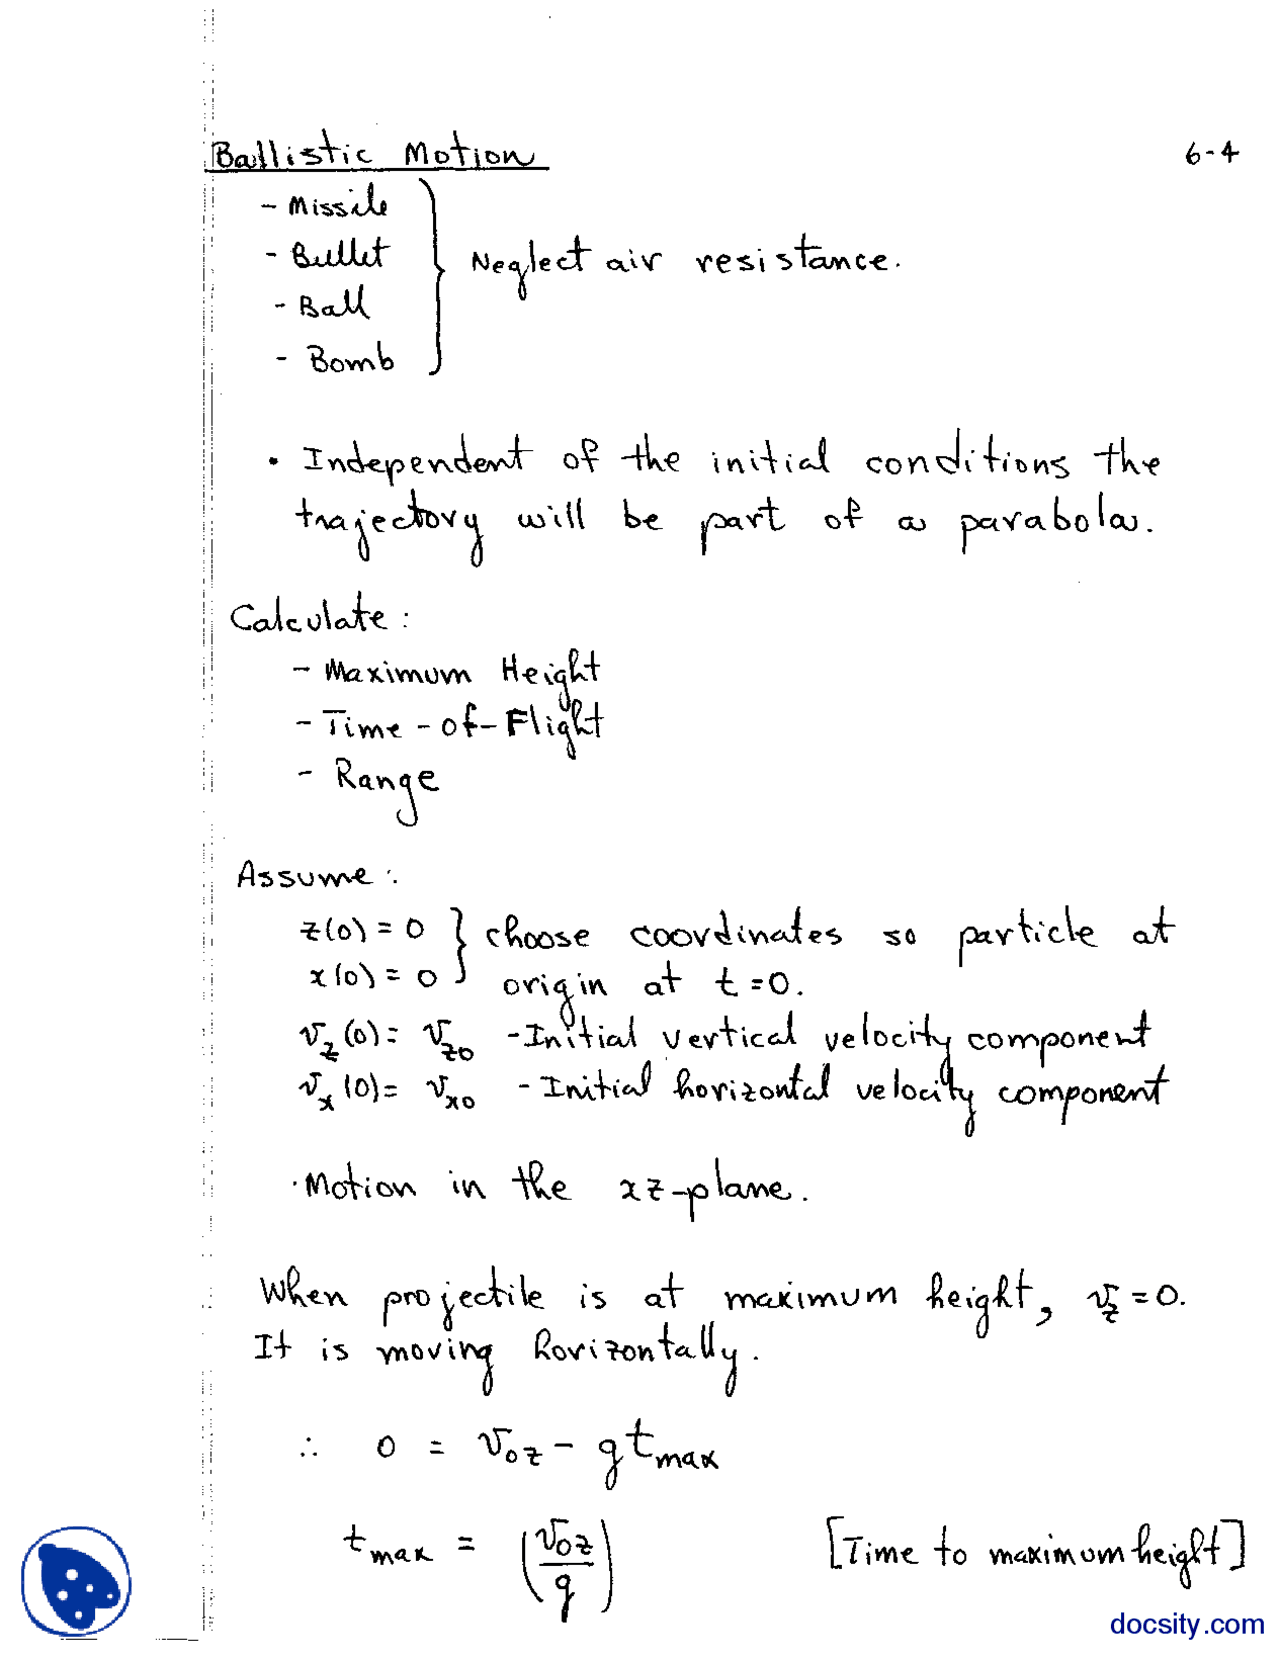 Ballistic Motion 6-4
- Missile
- Bullet
- Ball
- Bomb
} Neglect air resistance.
• Independent of the initial conditions the
trajectory will be part of a parabola.
Calculate:
- Maximum Height
- Time-of-Flight
- Range
Assume:
z(0) = 0 } choose coordinates so particle at
x(0) = 0 origin at t=0.
v_z(0) = v_z0 - Initial vertical velocity component
v_x(0) = v_x0 - Initial horizontal velocity component
· Motion in the xz-plane.
When projectile is at maximum height, v_z = 0.
It is moving horizontally.
∴ 0 = v_0z - g t_max
t_max = (v_0z / g) [Time to maximum height]
docsity.com